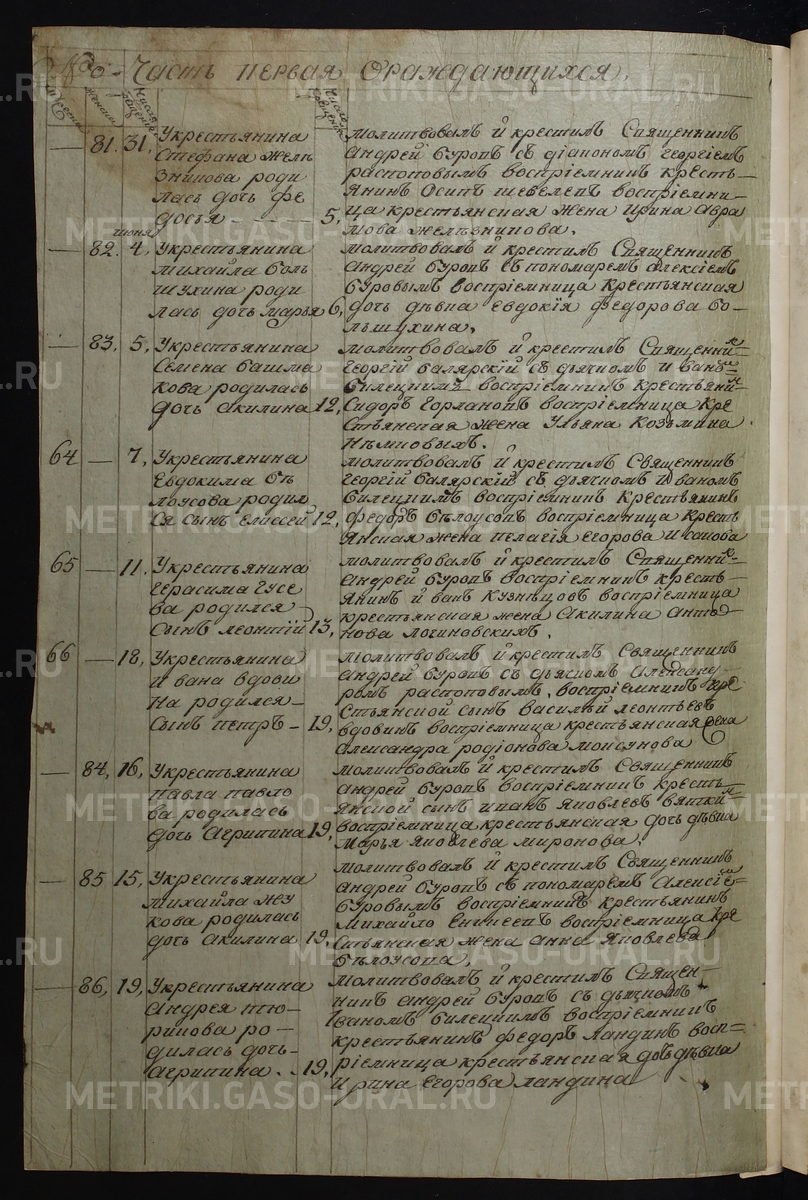 Часть первая ораждающихся.
81. 31, Укрестьянина
Стефана желѣ
знинова роди
лась дочь фе
досья 5,
молитвовалъ й крестилъ Священникъ
андрей буровъ съ діакономъ георгіемъ
распоповымъ воспріемникъ кресть-
янинъ Осипъ шевелевъ воспріемни-
ца крестьянская жена ирина авра
мова желѣзникова.
июня
82. 4, Укрестьянина
михайла боль
шухина роди
лась дочь марья 6,
молитвовалъ й крестилъ Священникъ
андрей буровъ съ пономаремъ алексіемъ
буровымъ воспріемница Крестьянская
дочь дѣвка Евдокія Федорова бо-
льшухина,
83, 5, Укрестьянина
Семена башма
кова родилась
дочь акилина 12,
молитвовалъ й крестилъ Священни-
георгій валярскій съ дьячкомъ и вано-
билецкимъ воспріемникъ крестьяни-
Сидоръ горлановъ воспріемница кре
стьянская жена Ульяна Козьмина
64 7, Укрестьянина
Евдокима бѣ
лоусова родил
ся сынъ елисей 12,
молитвовалъ й крестилъ Священникъ
георгій балярскій съ дьячкомъ иваномъ
билецкимъ воспріемникъ Крестьянинъ
федоръ бѣлоусовъ воспріемница кресть
янская жена пелагія егорова
65 11, Укрестьянина
герасима гусе
ва родился
сынъ леонтій 13,
молитвовалъ й крестилъ Священни-
андрей буровъ воспріемникъ кресть-
янинъ й ванъ Кузнецовъ воспріемница
крестьянская жена акилина анто-
нова логиновскихъ,
66 18, Укрестьянина
и вана вдови
на родился
Сынъ петръ 19,
молитвовалъ й крестилъ Священникъ
андрей буровъ съ дьячкомъ александ-
ромъ распоповымъ, воспріемникъ кре
стьянской сынъ василій леонтьевъ
вдовинъ воспріемница крестьянская жена
александра родіонова
84, 16, Укрестьянина
павла павло
ва родилась
дочь агрипина 19,
молитвовалъ й крестилъ Священникъ
андрей буровъ воспріемникъ кресть-
янской сынъ иванъ яковлевъ вятки-
воспріемница крестьянская дочь дѣвка
марья яковлева миронова,
85 15, Укрестьянина
михайла жу
кова родилась
дочь акилина 19,
молитвовалъ й крестилъ Священникъ
андрей буровъ съ пономаремъ алексіе-
буровымъ воспріемникъ крестьянинъ
михайло воспріемница кре
стьянская жена анна яковлева
бѣлоусова,
86, 19, Укрестьянина
андрея тю-
рикова ро-
дилась дочь-
агрипина 19,
молитвовалъ й крестилъ Священ-
никъ андрей буровъ съ дьячкомъ
Іваномъ билецкимъ воспріемникъ
крестьянинъ федоръ ландинъ восп-
ріемница крестьянская дочь дѣвка
ирина егорова ландина
METRIKI.GASO-URAL.RU